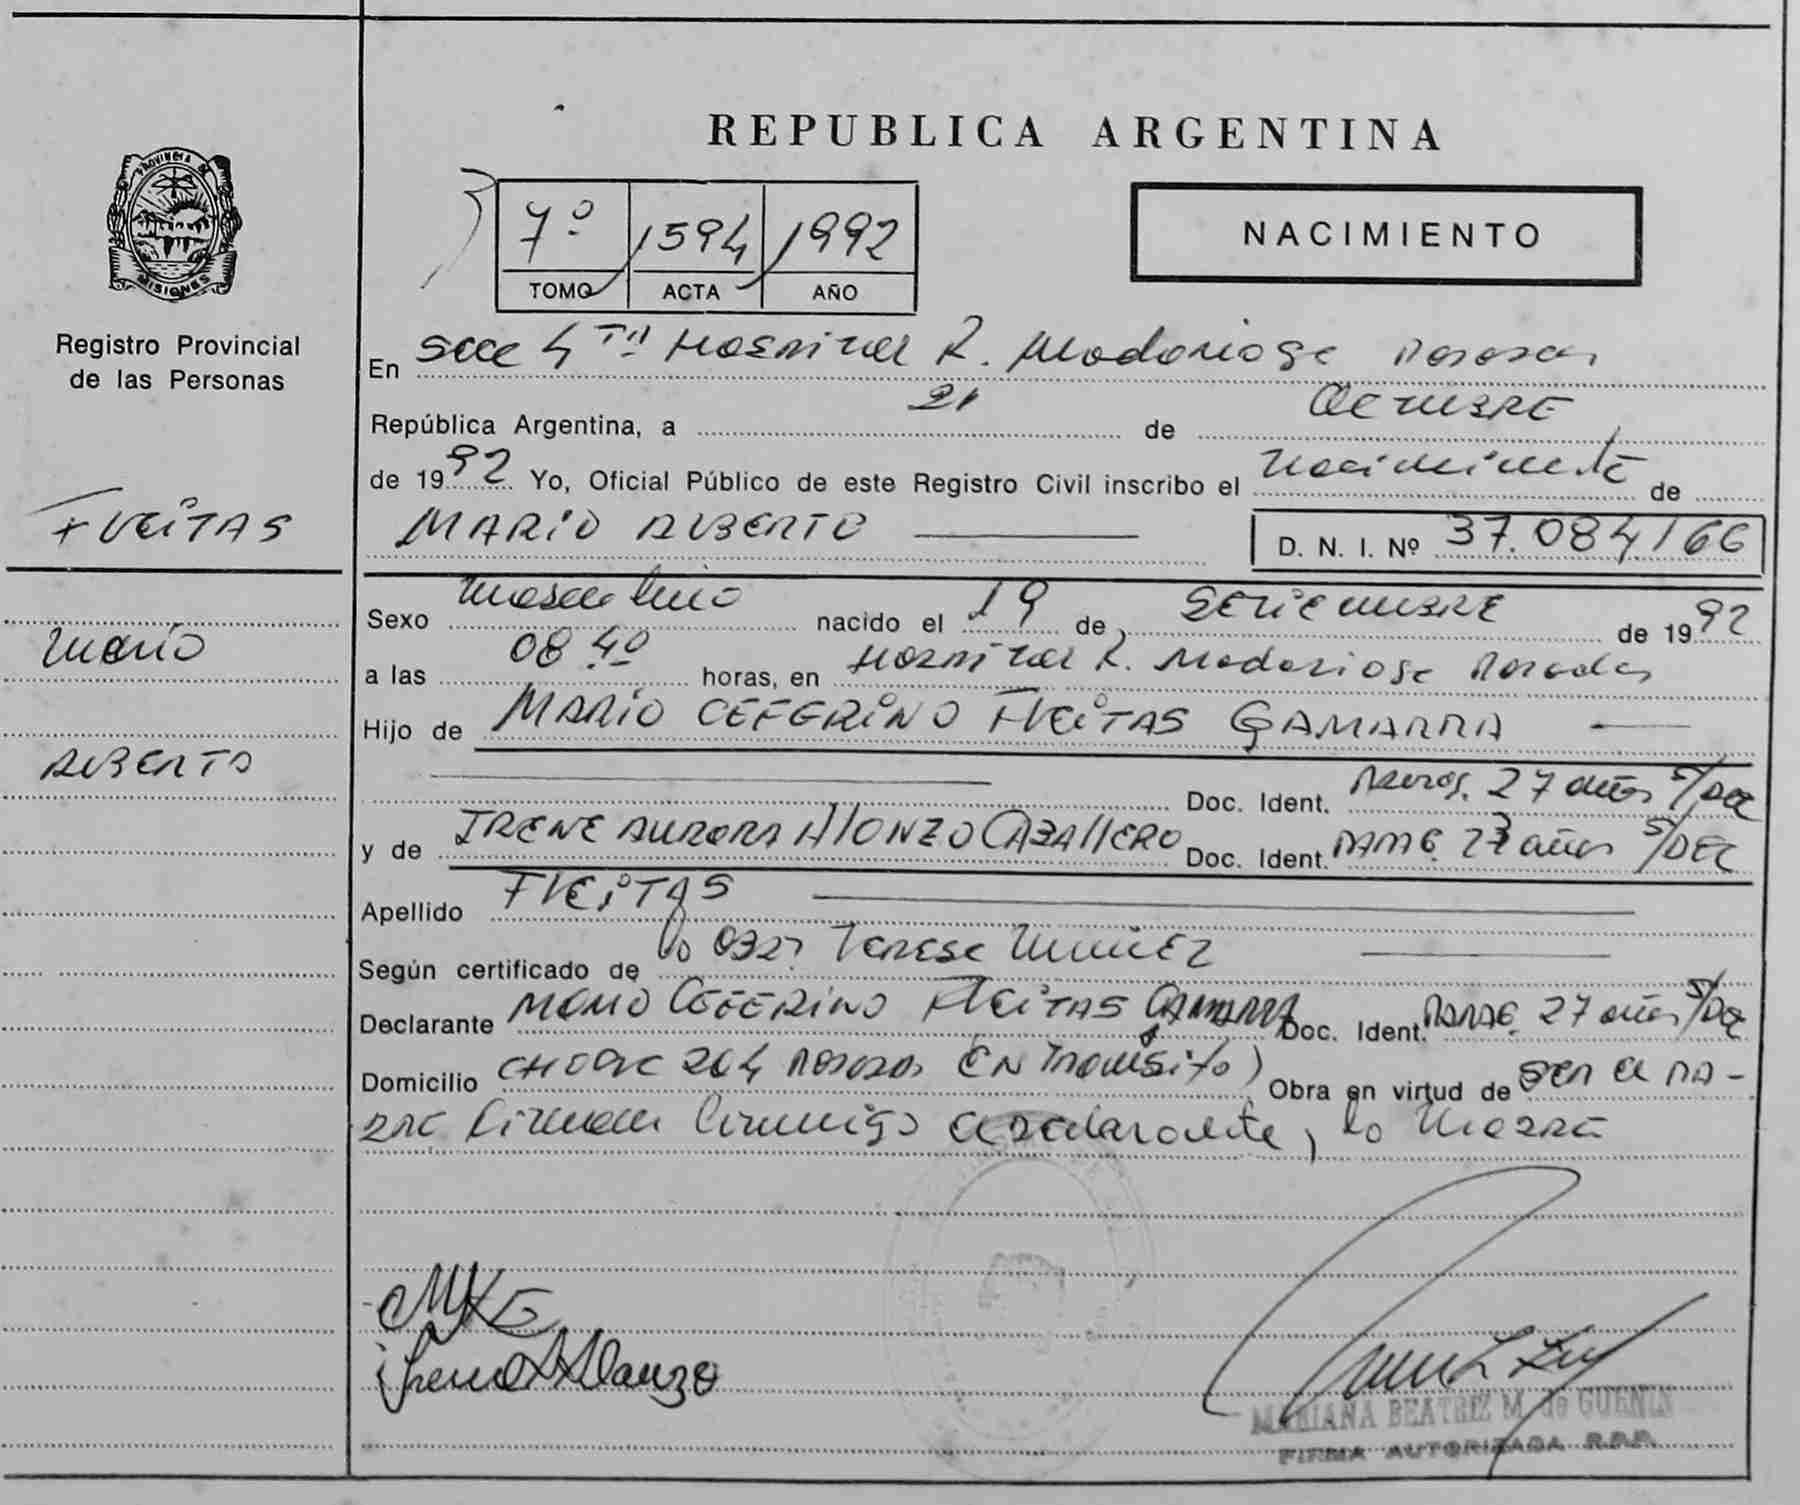 REPUBLICA ARGENTINA
PROVINCIA DE
MISIONES
Registro Provincial
de las Personas
7º 1594 1992
TOMO ACTA AÑO
NACIMIENTO
En Secc 4 TA Hospital R. Madariaga Posadas
República Argentina, a 21 de Octubre
de 1992 Yo, Oficial Público de este Registro Civil inscribo el Nacimiento de
FLEiTAS
MARiO ALBERTO D. N. I. Nº 37.084166
Sexo Masculino nacido el 19 de SETiEMBRE de 1992
Mario
a las 08 40 horas, en Hospital R. Madariaga Posadas
Hijo de MARiO CEFERiNO FLEiTAS GAMARRA
ALBERTO
Doc. Ident. 27 años S/DOC
y de IRENE AURORA AlONZO CABAllERO Doc. Ident. 27 años S/DOC
Apellido FLEiTAS
Según certificado de Teresa
Declarante MARIO CEFERiNO FLEiTAS GAMARRA Doc. Ident. 27 años S/DOC
Domicilio 204 Posadas EN Transito) Obra en virtud de SER El PA-
DRE Firman Conmigo el declarante, la Madre
Irene A Alonzo
MARIANA BEATRIZ M. de GUENIN
FIRMA AUTORIZADA R.P.P.